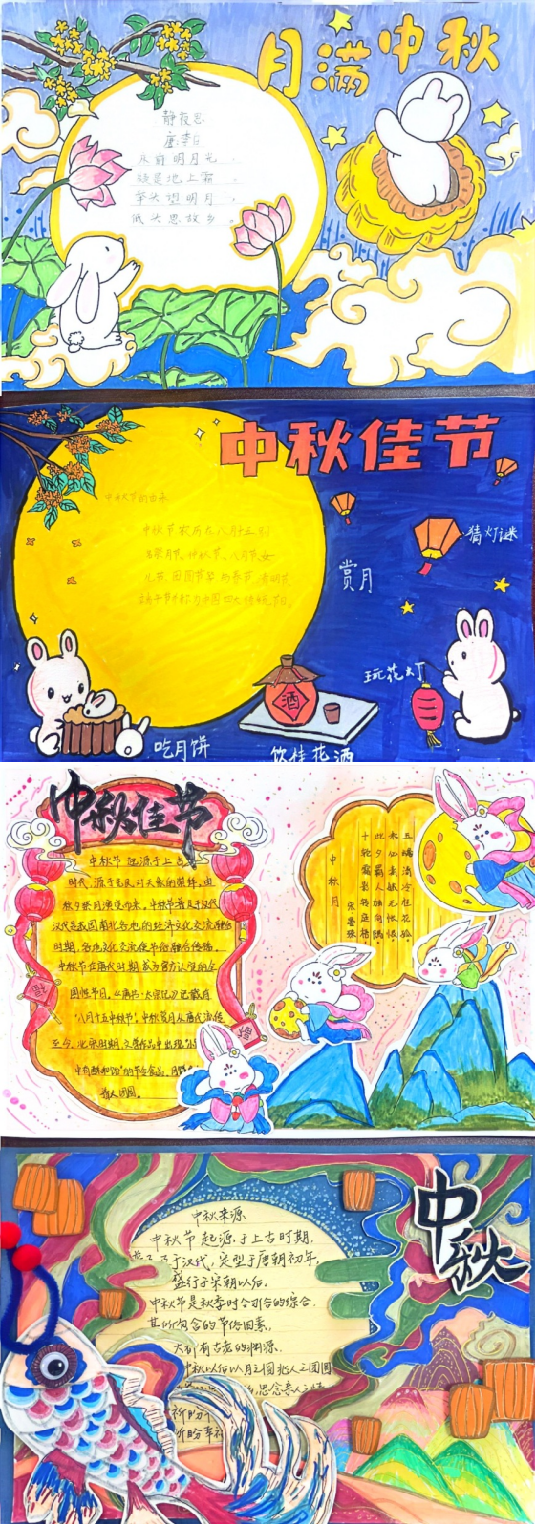 月满中秋
静夜思
唐:李白
床前明月光,
疑是地上霜。
举头望明月,
低头思故乡。
中秋佳节
中秋节的由来
中秋节农历在八月十五别
名祭月节、仲秋节、八月节、女
儿节、团圆节等,与春节、清明节、
端午节并称为中国四大传统节日。
猜灯谜
赏月
玩花灯
酒
吃月饼
饮桂花酒
中秋佳节
中秋节起源于上古
时代,源于古民对天象的崇拜,由
秋夕祭月演变而来。中秋节普及于汉代
时期,各地文化交流使节俗融合传播。
中秋节在唐代时期成为官方认定的全
国性节日。《唐书·太宗记》已载月
"八月十五中秋节",中秋赏月从唐代流传
至今,北宋时期,文学作品中出现"小
中有酥和饴"的节令食品,月饼
着人团圆。
中秋月
十轮霜影转庭梧
此夕羁人独向隅
未必素娥无怅恨
玉蟾清冷桂花孤
中秋
中秋来源
中秋节起源于上古时期,
于汉代,定型于唐朝初年,
盛行于宋朝以后。
中秋节是秋季时令习俗的综合,
其所包含的节俗因素,
大都有古老的渊源。
中秋以后以月之圆兆人之团圆
思念亲人之情
祈盼
祈盼幸福